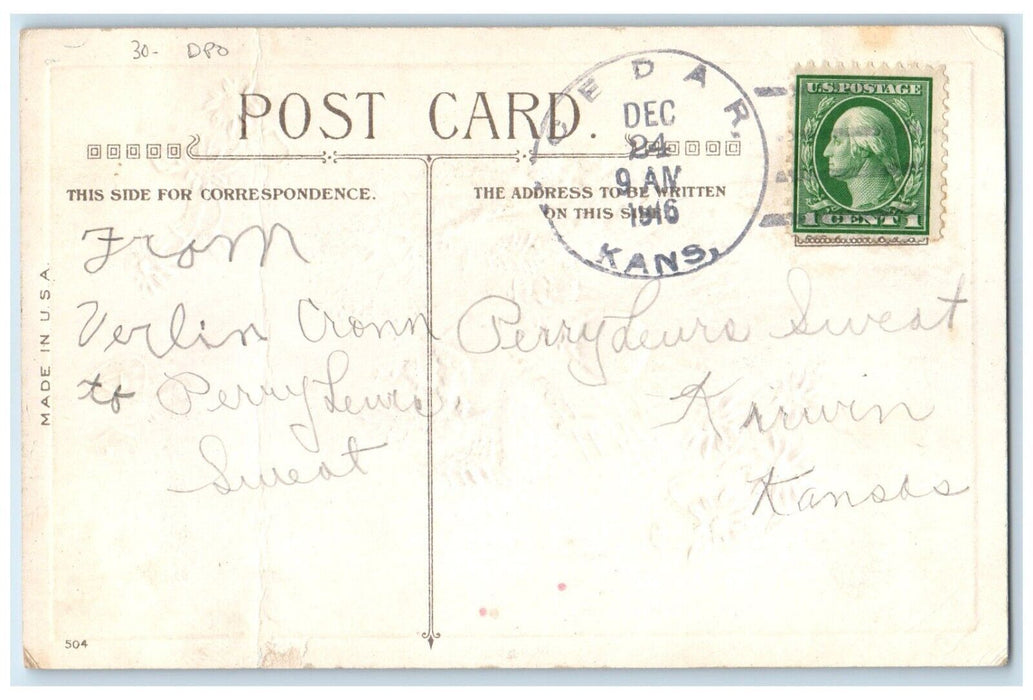 30- DPO
POST CARD.
CEDAR,
DEC
24
9 AM
1916
KANS,
U.S. POSTAGE
1 CENT 1
THIS SIDE FOR CORRESPONDENCE.
THE ADDRESS TO BE WRITTEN
ON THIS SIDE
MADE IN U.S.A.
From
Verlin Cronn
to Perry Lewis
Sweat
Perry Lewis Sweat
Kirwin
Kansas
504